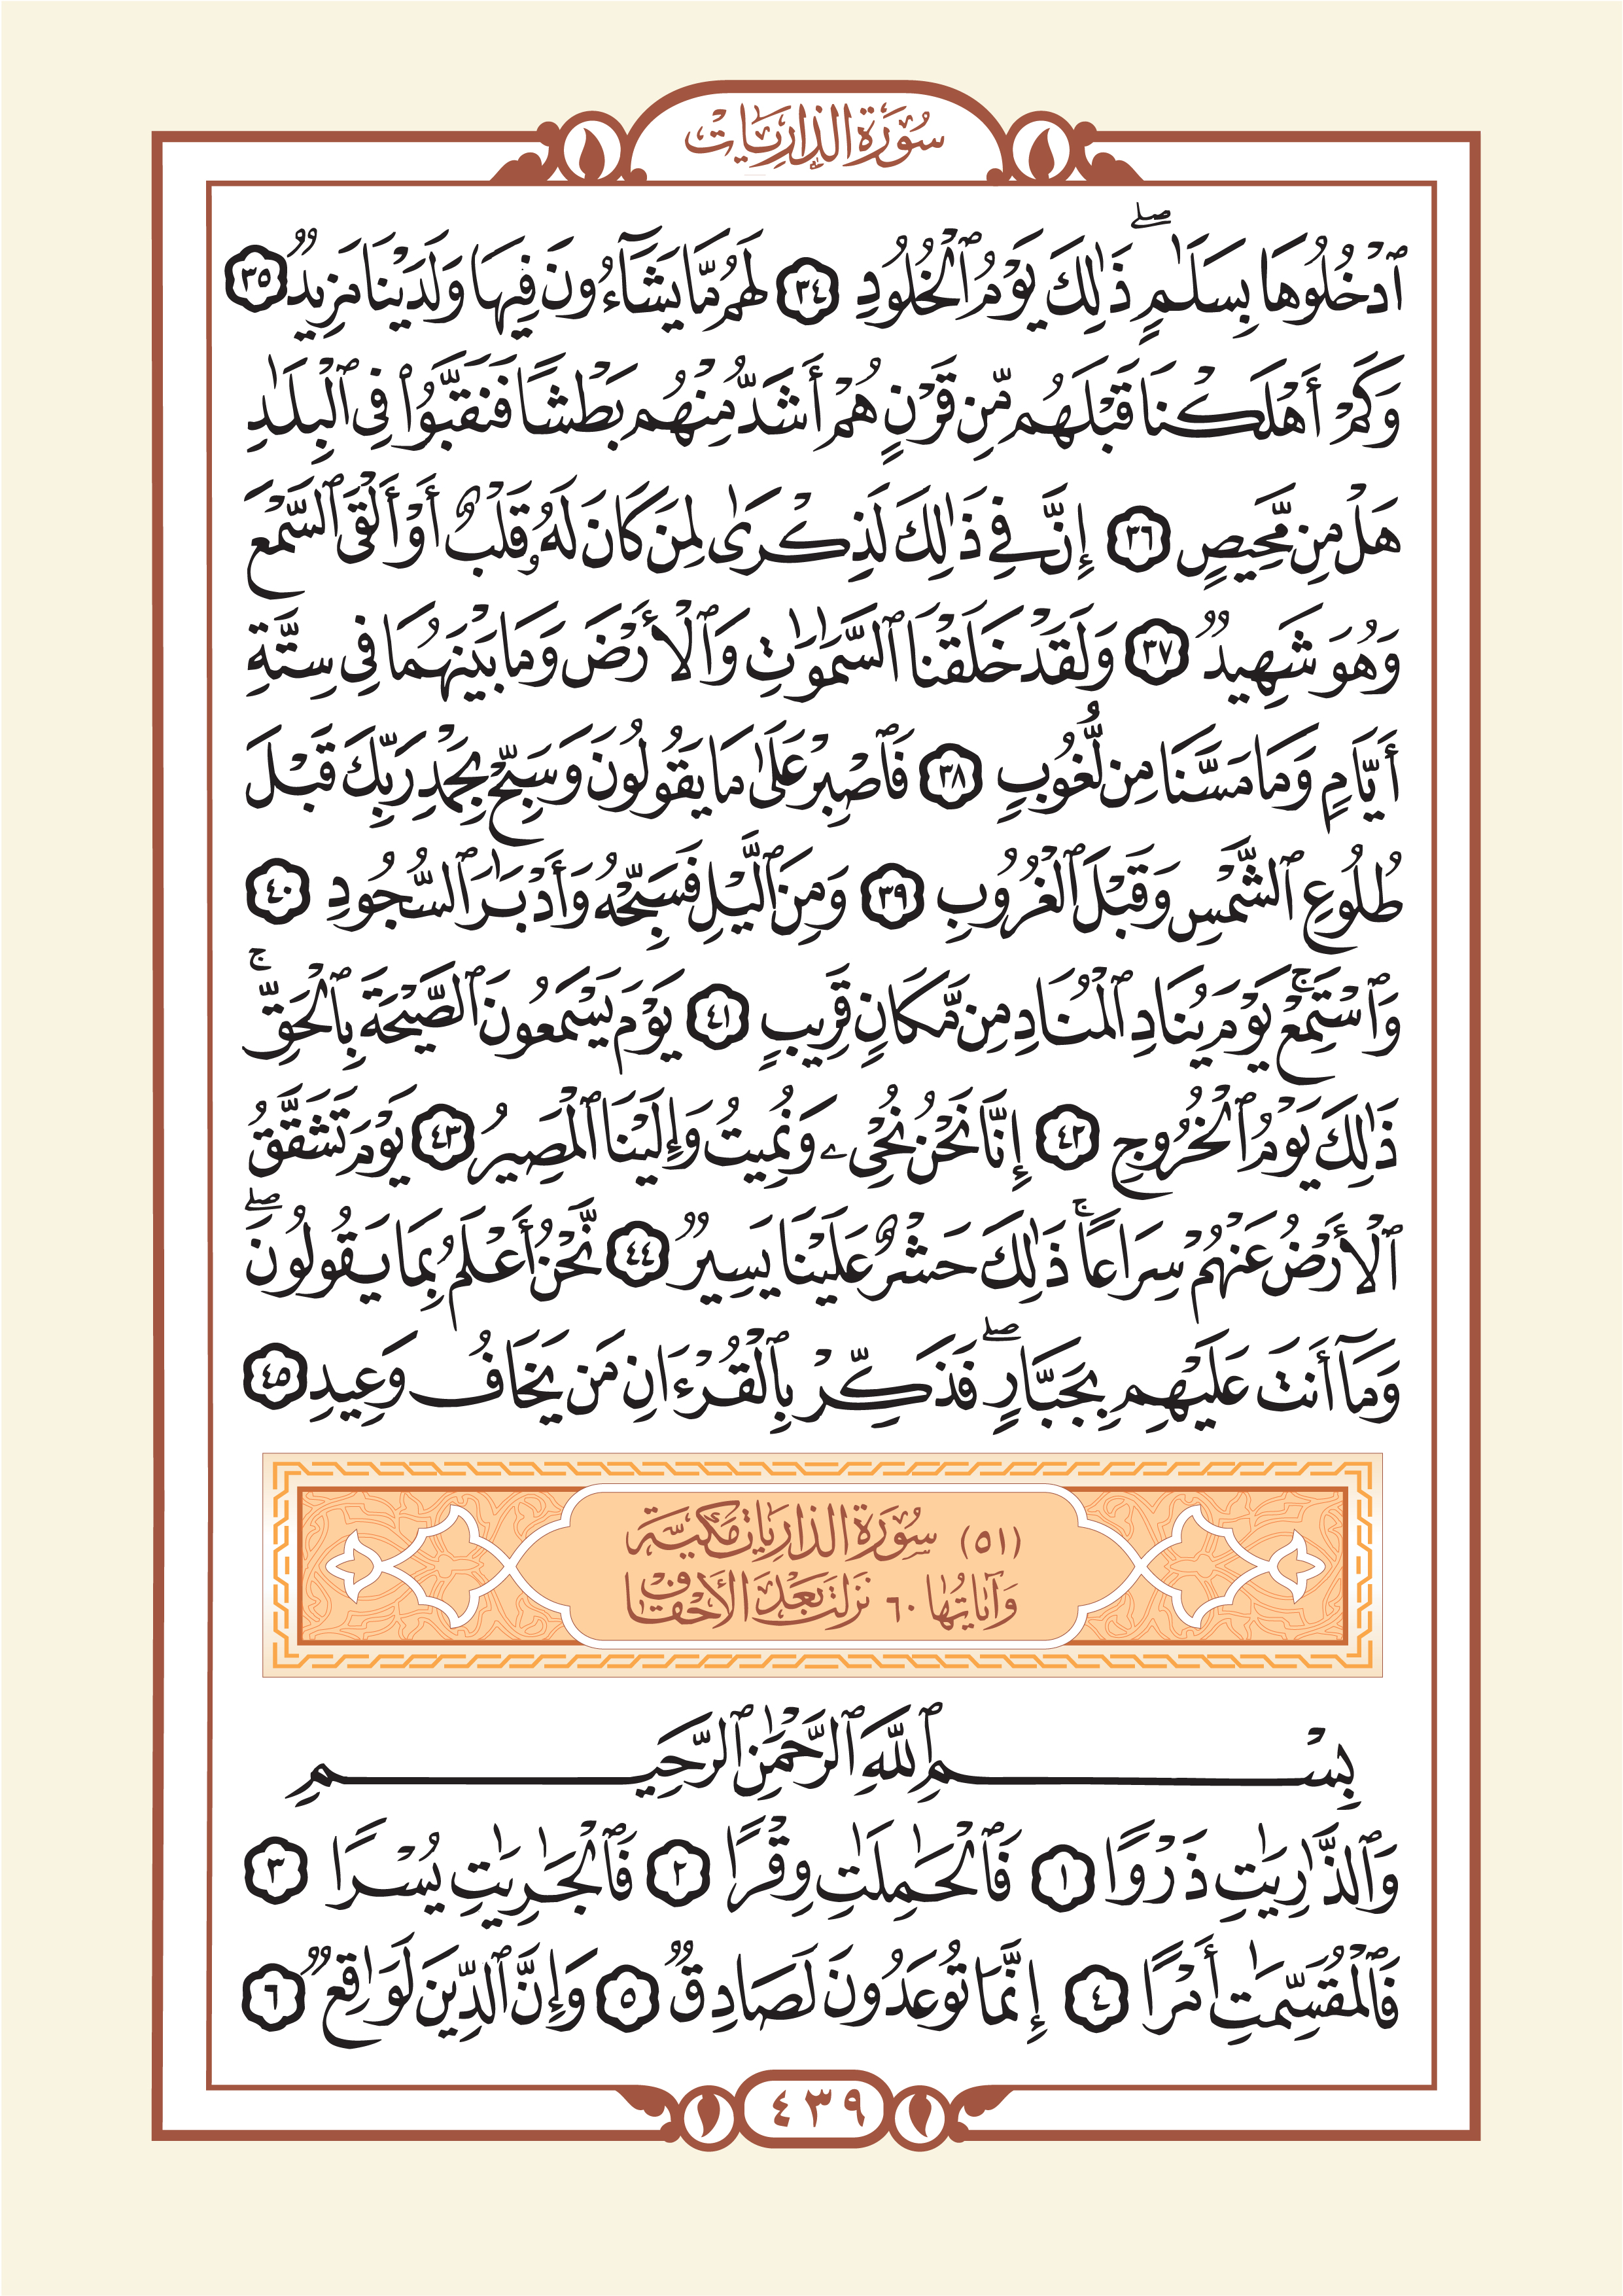 سُورَةُ الذَّارِيَاتِ
ٱدْخُلُوهَا بِسَلَٰمٍۖ ذَٰلِكَ يَوْمُ ٱلْخُلُودِ ٣٤ لَهُم مَّا يَشَآءُونَ فِيهَا وَلَدَيْنَا مَزِيدٌ ٣٥
وَكَمْ أَهْلَكْنَا قَبْلَهُم مِّن قَرْنٍ هُمْ أَشَدُّ مِنْهُم بَطْشًا فَنَقَّبُوا۟ فِي ٱلْبِلَٰدِ
هَلْ مِن مَّحِيصٍ ٣٦ إِنَّ فِي ذَٰلِكَ لَذِكْرَىٰ لِمَن كَانَ لَهُۥ قَلْبٌ أَوْ أَلْقَى ٱلسَّمْعَ
وَهُوَ شَهِيدٌ ٣٧ وَلَقَدْ خَلَقْنَا ٱلسَّمَٰوَٰتِ وَٱلْأَرْضَ وَمَا بَيْنَهُمَا فِي سِتَّةِ
أَيَّامٍ وَمَا مَسَّنَا مِن لُّغُوبٍ ٣٨ فَٱصْبِرْ عَلَىٰ مَا يَقُولُونَ وَسَبِّحْ بِحَمْدِ رَبِّكَ قَبْلَ
طُلُوعِ ٱلشَّمْسِ وَقَبْلَ ٱلْغُرُوبِ ٣٩ وَمِنَ ٱلَّيْلِ فَسَبِّحْهُ وَأَدْبَٰرَ ٱلسُّجُودِ ٤٠
وَٱسْتَمِعْۚ يَوْمَ يُنَادِ ٱلْمُنَادِ مِن مَّكَانٍ قَرِيبٍ ٤١ يَوْمَ يَسْمَعُونَ ٱلصَّيْحَةَ بِٱلْحَقِّۚ
ذَٰلِكَ يَوْمُ ٱلْخُرُوجِ ٤٢ إِنَّا نَحْنُ نُحْيِۦ وَنُمِيتُ وَإِلَيْنَا ٱلْمَصِيرُ ٤٣ يَوْمَ تَشَقَّقُ
ٱلْأَرْضُ عَنْهُمْ سِرَاعًاۚ ذَٰلِكَ حَشْرٌ عَلَيْنَا يَسِيرٌ ٤٤ نَّحْنُ أَعْلَمُ بِمَا يَقُولُونَۖ
وَمَآ أَنتَ عَلَيْهِم بِجَبَّارٍۖ فَذَكِّرْ بِٱلْقُرْءَانِ مَن يَخَافُ وَعِيدِ ٤٥
(٥١) سُورَةُ الذَّارِيَاتِ مَكِّيَّة
وَآيَاتُهَا ٦٠ نَزَلَتْ بَعْدَ الْأَحْقَافِ
بِسْمِ ٱللَّهِ ٱلرَّحْمَٰنِ ٱلرَّحِيمِ
وَٱلذَّٰرِيَٰتِ ذَرْوًا ١ فَٱلْحَٰمِلَٰتِ وِقْرًا ٢ فَٱلْجَٰرِيَٰتِ يُسْرًا ٣
فَٱلْمُقَسِّمَٰتِ أَمْرًا ٤ إِنَّمَا تُوعَدُونَ لَصَادِقٌ ٥ وَإِنَّ ٱلدِّينَ لَوَٰقِعٌ ٦
٤٣٩